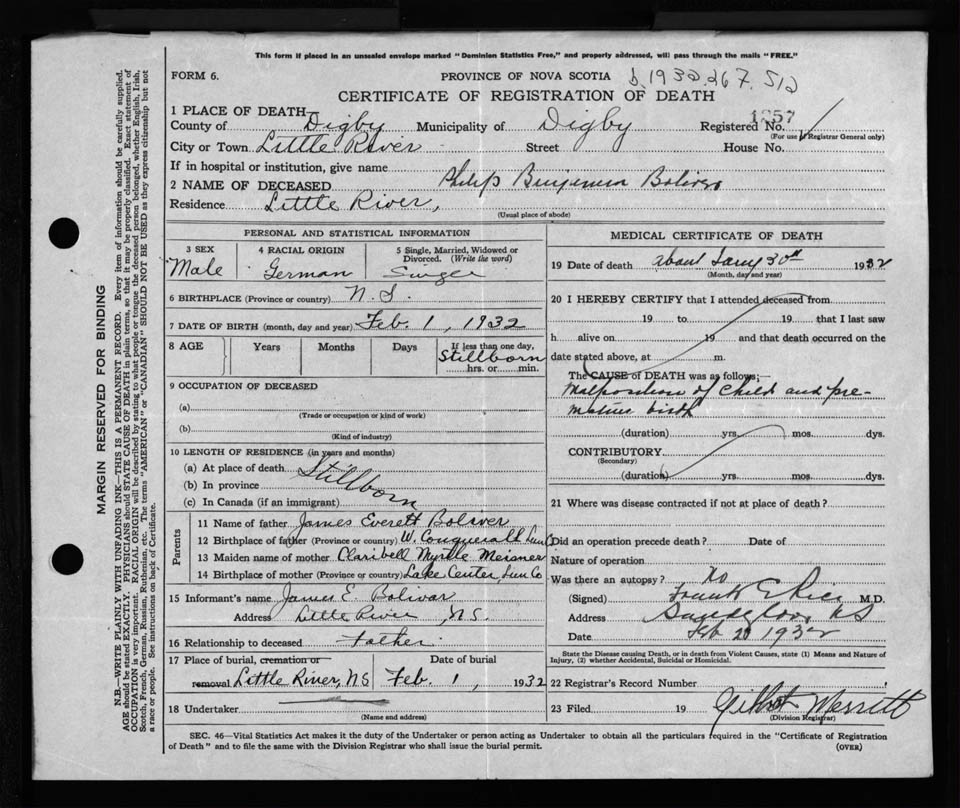 This form if placed in an unsealed envelope marked "Dominion Statistics Free," and properly addressed, will pass through the mails "FREE."
FORM 6.
PROVINCE OF NOVA SCOTIA b. 1932.267.512
CERTIFICATE OF REGISTRATION OF DEATH
1 PLACE OF DEATH
County of Digby Municipality of Digby Registered No. 1257
(For use of Registrar General only)
City or Town Little River Street House No.
If in hospital or institution, give name
2 NAME OF DECEASED Philip Benjamin Boliver
Residence Little River,
(Usual place of abode)
PERSONAL AND STATISTICAL INFORMATION
3 SEX
Male
4 RACIAL ORIGIN
German
5 Single, Married, Widowed or Divorced. (Write the word)
Single
6 BIRTHPLACE (Province or country) N. S.
7 DATE OF BIRTH (month, day and year) Feb. 1, 1932
8 AGE Years Months Days If less than one day,
Stillborn
hrs. or min.
9 OCCUPATION OF DECEASED
(a)
(Trade or occupation or kind of work)
(b)
(Kind of industry)
10 LENGTH OF RESIDENCE (in years and months)
(a) At place of death Stillborn
(b) In province
(c) In Canada (if an immigrant)
Parents
11 Name of father James Everett Boliver
12 Birthplace of father (Province or country) W. Lun Co
13 Maiden name of mother Claribell Myrtle Meisner
14 Birthplace of mother (Province or country) Lake Center, Lun Co
15 Informant's name James E. Bolivar
Address Little River, N.S.
16 Relationship to deceased Father
17 Place of burial, cremation or Date of burial
removal Little River, N.S Feb. 1, 1932
18 Undertaker
(Name and address)
MEDICAL CERTIFICATE OF DEATH
19 Date of death about Jany 30th 1932
(Month, day and year)
20 I HEREBY CERTIFY that I attended deceased from
19 to 19 that I last saw
h alive on 19 and that death occurred on the
date stated above, at m.
The CAUSE of DEATH was as follows:—
Malposition of child and pre-
mature birth
(duration) yrs. mos. dys.
CONTRIBUTORY
(Secondary)
(duration) yrs. mos. dys.
21 Where was disease contracted if not at place of death?
Did an operation precede death? Date of
Nature of operation
Was there an autopsy? No
(Signed) Frank E Rice M.D.
Address Sandy Cove, NS
Date Feb 20 1932
State the Disease causing Death, or in death from Violent Causes, state (1) Means and Nature of
Injury, (2) whether Accidental, Suicidal or Homicidal.
22 Registrar's Record Number
23 Filed 19 Gilbert Merritt
(Division Registrar)
SEC. 46—Vital Statistics Act makes it the duty of the Undertaker or person acting as Undertaker to obtain all the particulars required in the "Certificate of Registration
of Death" and to file the same with the Division Registrar who shall issue the burial permit.
(OVER)
MARGIN RESERVED FOR BINDING
N.B.—WRITE PLAINLY WITH UNFADING INK—THIS IS A PERMANENT RECORD. Every item of information should be carefully supplied.
AGE should be stated EXACTLY. PHYSICIANS should STATE CAUSE OF DEATH in plain terms, so that it may be properly classified. Exact statement of
OCCUPATION is very important. RACIAL ORIGIN will be described by stating to what people or tongue the deceased person belonged, whether English, Irish,
Scotch, French, German, Russian, Ruthenian, etc. The terms "AMERICAN" or "CANADIAN" SHOULD NOT BE USED as they express citizenship but not
a race or people. See instructions on back of Certificate.